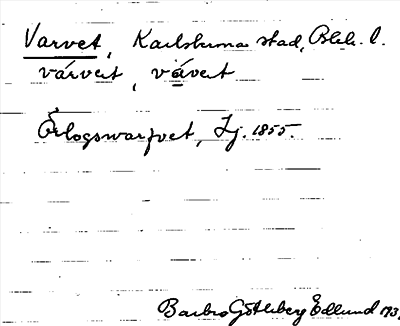 Varvet, Karlskrona stad, Blek. l.
várvet, vávet
Örlogswarfvet, Lj. 1855.
Barbro Götleberg Edlund 193